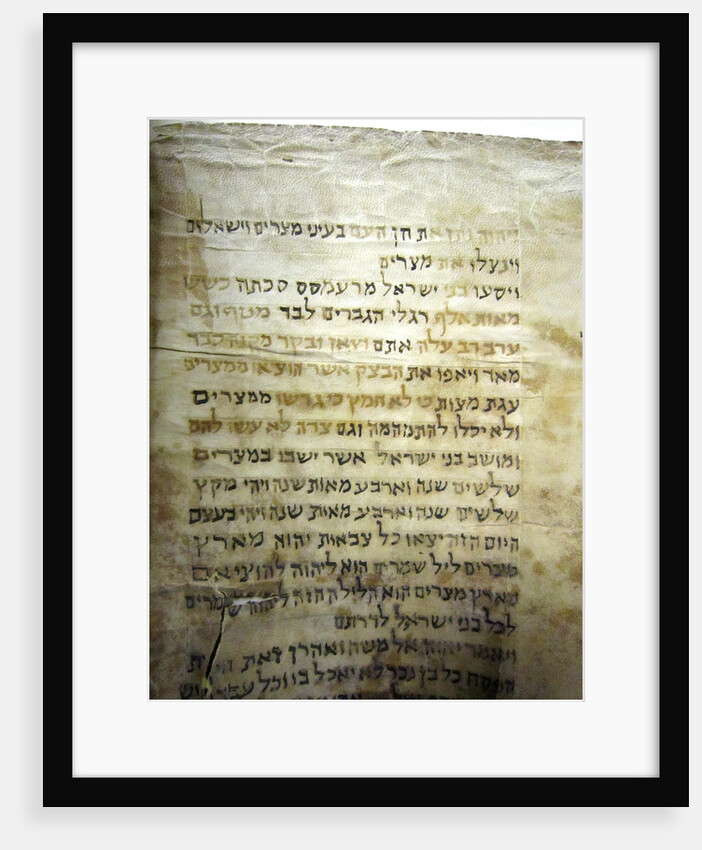 ויהוה נתן את חן העם בעיני מצרים וישאלום
וינצלו את מצרים
ויסעו בני ישראל מרעמסס סכתה כשש
מאות אלף רגלי הגברים לבד מטף וגם
ערב רב עלה אתם וצאן ובקר מקנה כבד
מאד ויאפו את הבצק אשר הוציאו ממצרים
עגת מצות כי לא חמץ כי גרשו ממצרים
ולא יכלו להתמהמה וגם צדה לא עשו להם
ומושב בני ישראל אשר ישבו במצרים
שלשים שנה וארבע מאות שנה ויהי מקץ
שלשים שנה וארבע מאות שנה ויהי בעצם
היום הזה יצאו כל צבאות יהוה מארץ
מצרים ליל שמרים הוא ליהוה להוציאם
מארץ מצרים הוא הלילה הזה ליהוה שמרים
לכל בני ישראל לדרתם
ויאמר יהוה אל משה ואהרן זאת חקת
הפסח כל בן נכר לא יאכל בו וכל עבד איש